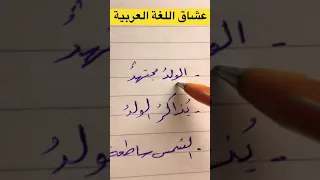 عشاق اللغة العربية
- الولدُ مجتهدٌ
- يُذاكرُ الولدُ
- الشمس ساطعة